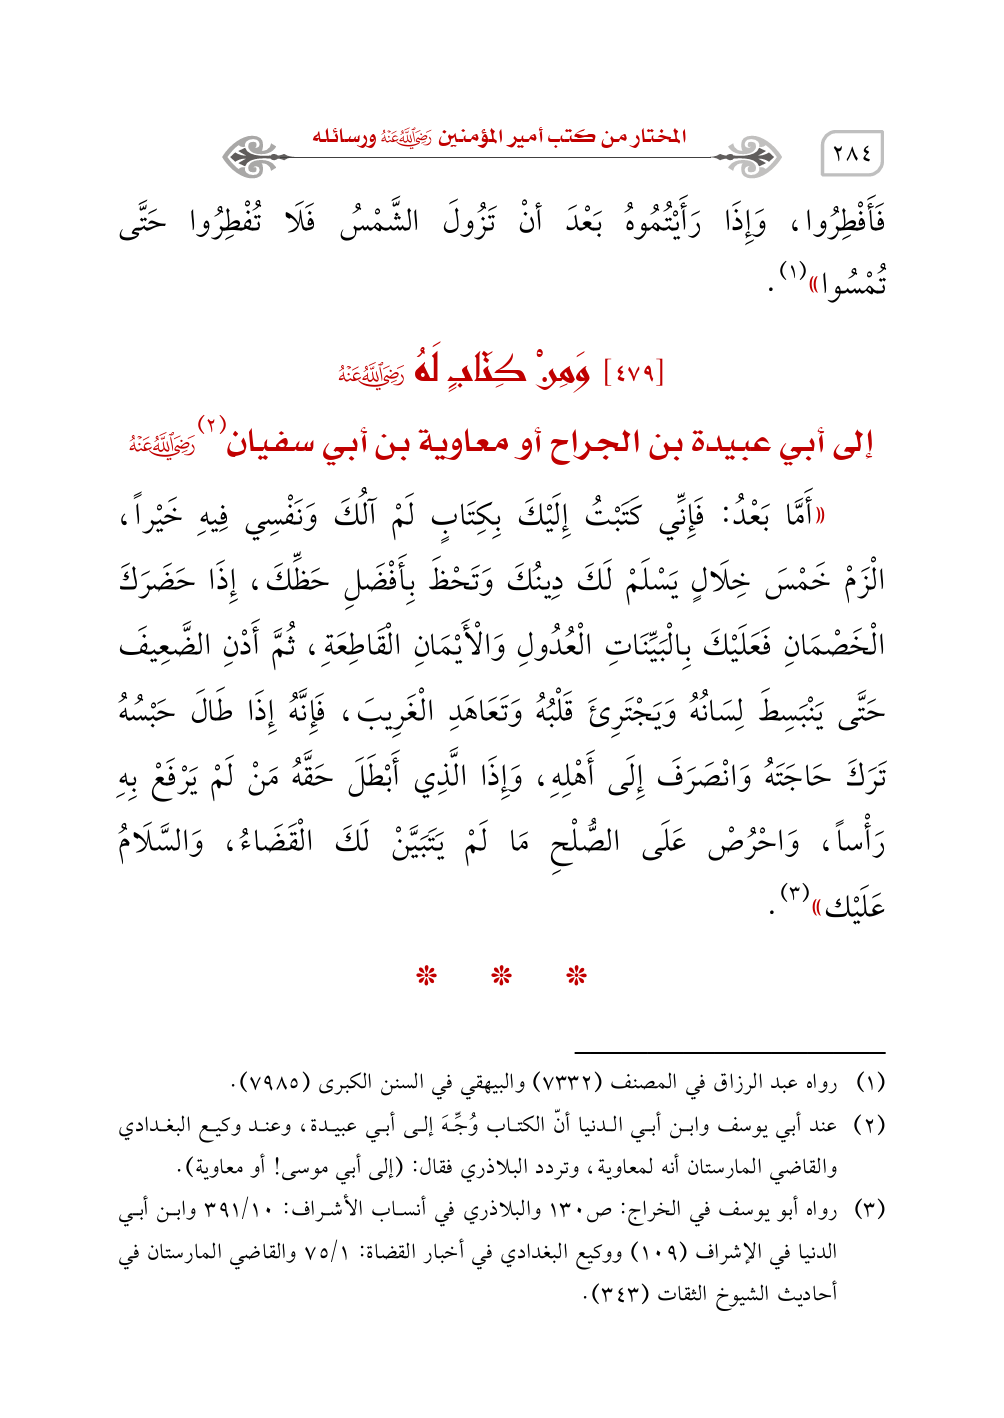 ٢٨٤
المختار من كتب أمير المؤمنين رَضِيَ اللَّهُ عَنْهُ ورسائله
فَأَفْطِرُوا، وَإِذَا رَأَيْتُمُوهُ بَعْدَ أنْ تَزُولَ الشَّمْسُ فَلَا تُفْطِرُوا حَتَّى
تُمْسُوا»(١).
[٤٧٩] وَمِنْ كِتَابٍ لَهُ رَضِيَ اللَّهُ عَنْهُ
إلى أبي عبيدة بن الجراح أو معاوية بن أبي سفيان(٢) رَضِيَ اللَّهُ عَنْهُ
«أَمَّا بَعْدُ: فَإِنِّي كَتَبْتُ إِلَيْكَ بِكِتَابٍ لَمْ آلُكَ وَنَفْسِي فِيهِ خَيْراً،
الْزَمْ خَمْسَ خِلَالٍ يَسْلَمْ لَكَ دِينُكَ وَتَحْظَ بِأَفْضَلِ حَظِّكَ، إِذَا حَضَرَكَ
الْخَصْمَانِ فَعَلَيْكَ بِالْبَيِّنَاتِ الْعُدُولِ وَالْأَيْمَانِ الْقَاطِعَةِ، ثُمَّ أَدْنِ الضَّعِيفَ
حَتَّى يَنْبَسِطَ لِسَانُهُ وَيَجْتَرِئَ قَلْبُهُ وَتَعَاهَدِ الْغَرِيبَ، فَإِنَّهُ إِذَا طَالَ حَبْسُهُ
تَرَكَ حَاجَتَهُ وَانْصَرَفَ إِلَى أَهْلِهِ، وَإِذَا الَّذِي أَبْطَلَ حَقَّهُ مَنْ لَمْ يَرْفَعْ بِهِ
رَأْساً، وَاحْرُصْ عَلَى الصُّلْحِ مَا لَمْ يَتَبَيَّنْ لَكَ الْقَضَاءُ، وَالسَّلَامُ
عَلَيْك»(٣).
(١) رواه عبد الرزاق في المصنف (٧٣٣٢) والبيهقي في السنن الكبرى (٧٩٨٥).
(٢) عند أبي يوسف وابن أبي الدنيا أنّ الكتاب وُجِّهَ إلى أبي عبيدة، وعند وكيع البغدادي
والقاضي المارستان أنه لمعاوية، وتردد البلاذري فقال: (إلى أبي موسى! أو معاوية).
(٣) رواه أبو يوسف في الخراج: ص١٣٠ والبلاذري في أنساب الأشراف: ٣٩١/١٠ وابن أبي
الدنيا في الإشراف (١٠٩) ووكيع البغدادي في أخبار القضاة: ٧٥/١ والقاضي المارستان في
أحاديث الشيوخ الثقات (٣٤٣).